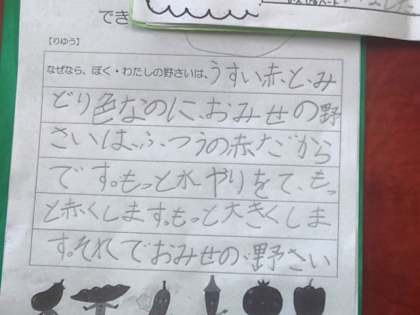 でき
【りゆう】
なぜなら、ぼく・わたしの野さいは、うすい赤と、み
どり色なのに、おみせの野
さいは、ふつうの赤だから
です。もっと水やりをて、もっ
と赤くします。もっと大きくしま
す。それでおみせの、野さい